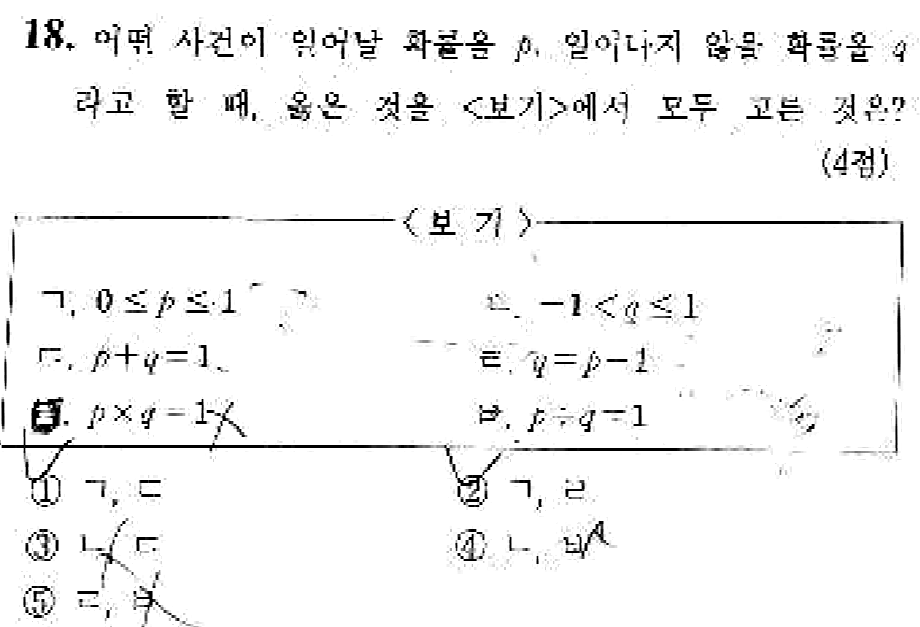 18. 어떤 사건이 일어날 확률을 p, 일어나지 않을 확률을 q
라고 할 때, 옳은 것을 <보기>에서 모두 고른 것은?
(4점)
<보 기>
ㄱ. 0≤p≤1 ㄴ. -1<q≤1
ㄷ. p+q=1 ㄹ. q=p-1
ㅁ. p×q=1 ㅂ. p÷q=1
① ㄱ, ㄷ ② ㄱ, ㄹ
③ ㄴ, ㄷ ④ ㄴ, ㅂ
⑤ ㄷ, ㅂ